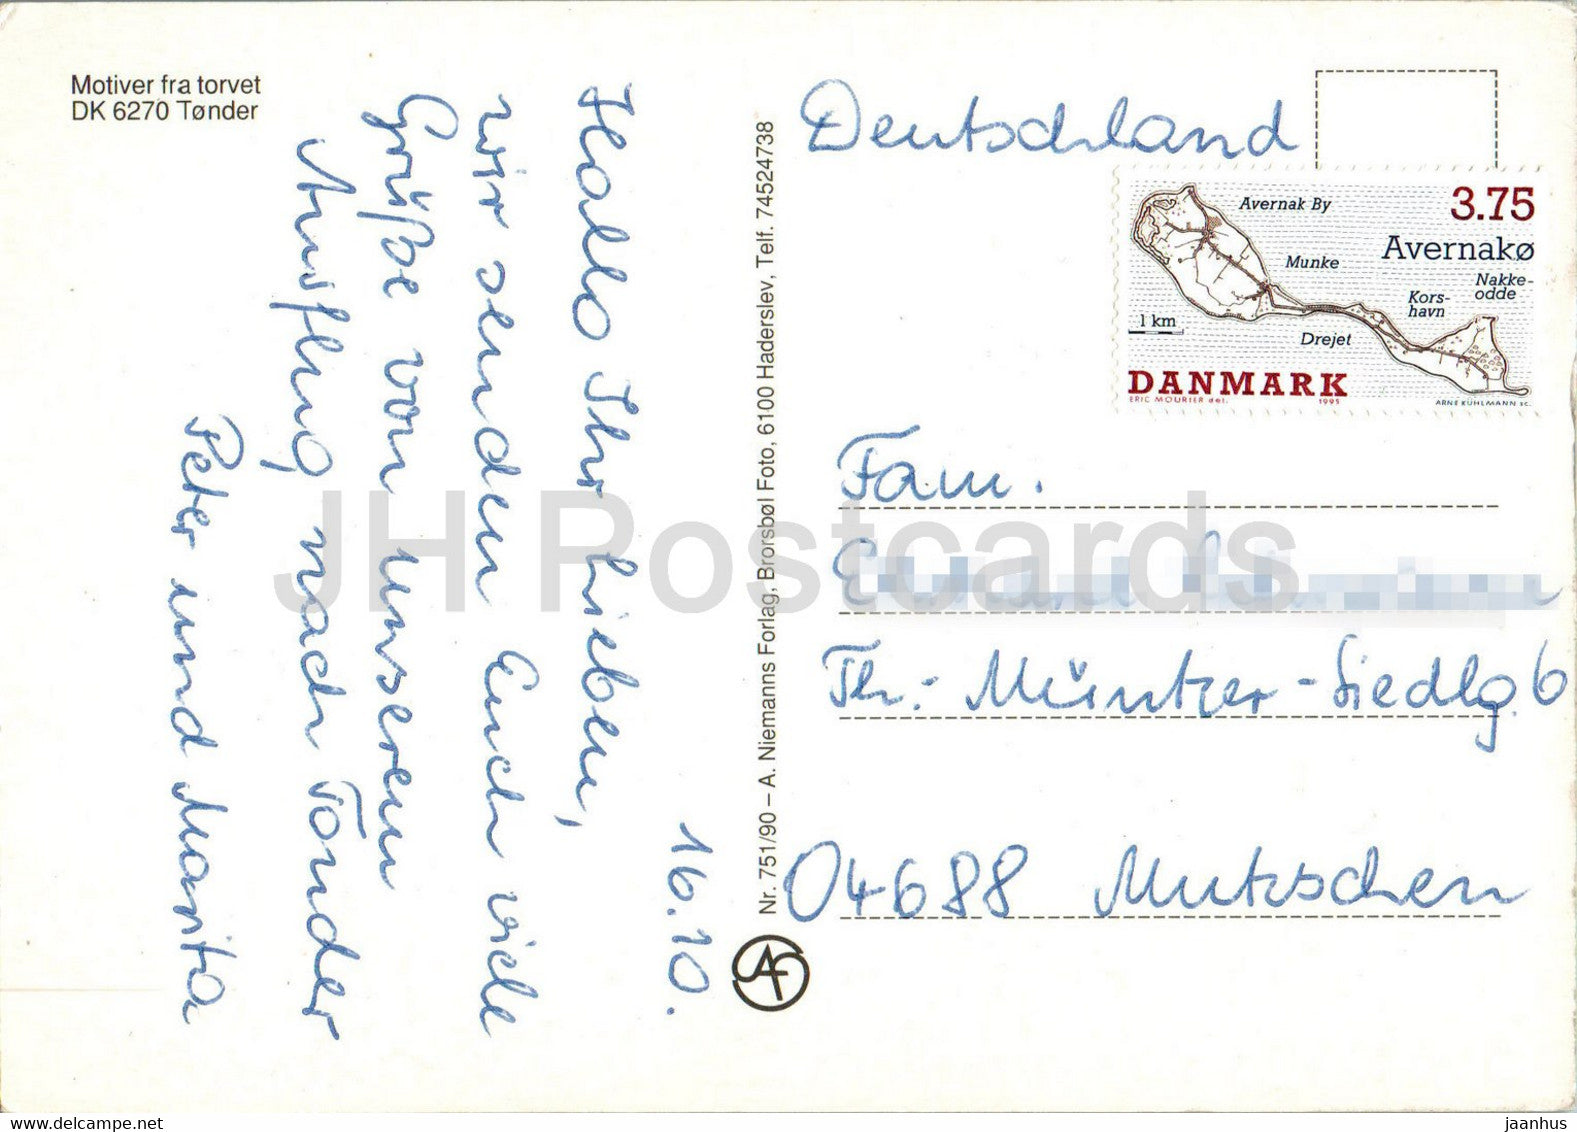 Motiver fra torvet
DK 6270 Tønder
16.10.
Hallo Ihr Lieben,
wir senden Euch viele
Grüße von unserem
Ausflug nach Tonder
Peter und Marita
Nr. 751/90 – A. Niemanns Forlag, Brorsbøl Foto, 6100 Haderslev, Telf. 74524738
Deutschland
3.75
Avernakø
Avernak By
Munke
Nakke-
odde
Kors-
havn
1 km
Drejet
DANMARK
ERIC MOURIER del. 1995 ARNE KÜHLMANN SC.
Fam.
Th.-Müntzer-Siedlg. 6
04688 Mutzschen
JH Postcards
www.delcampe.net
jaanhus